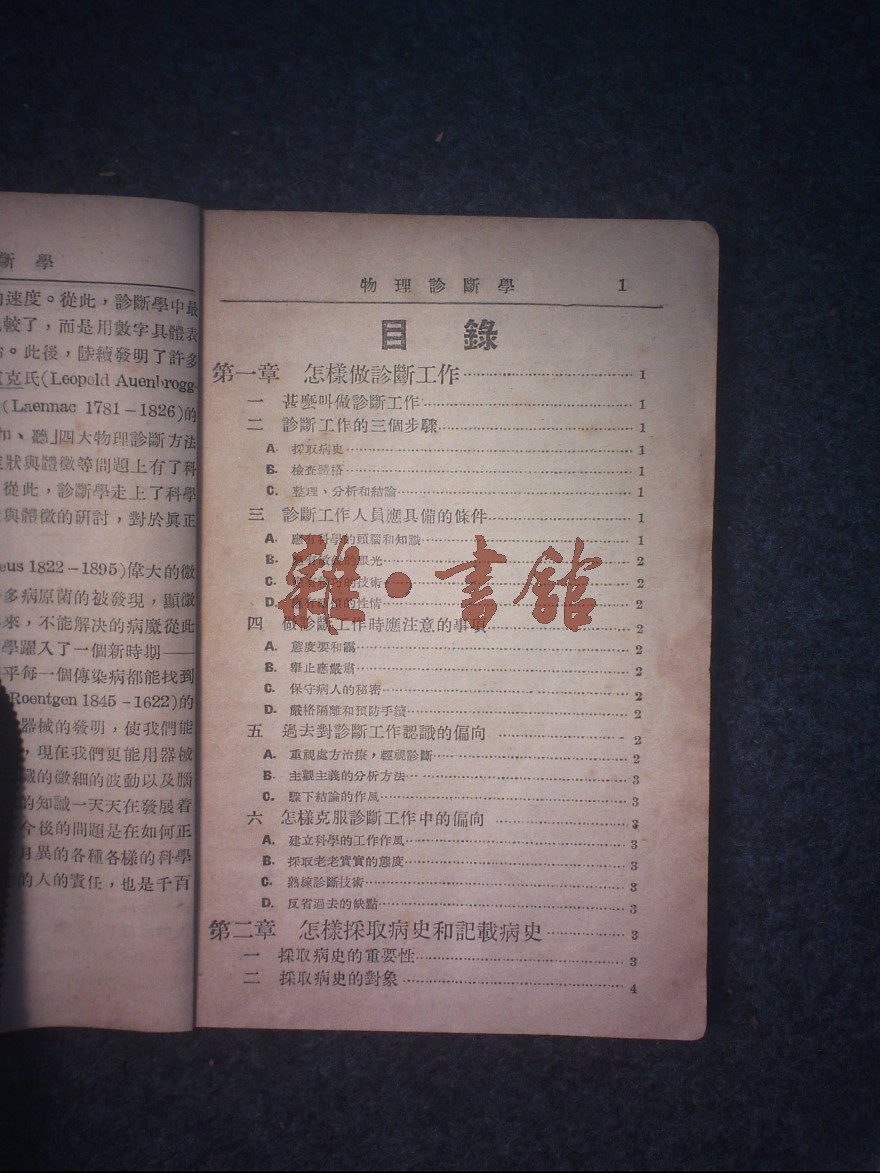 斷 學
速度。從此，診斷學中最
較了，而是用數字具體表
。此後，陸續發明了許多
克氏(Leopold Auenbrogg-
(Laennac 1781－1826)的
、聽」四大物理診斷方法
狀與體徵等問題上有了科
從此，診斷學走上了科學
與體徵的研討，對於眞正
eus 1822－1895)偉大的微
多病原菌的被發現，顯微
來，不能解決的病魔從此
學躍入了一個新時期——
平每一個傳染病都能找到
Roentgen 1845－1622)的
器械的發明，使我們能
，現在我們更能用器械
臟的微細的波動以及腦
的知識一天天在發展着
今後的問題是在如何正
月異的各種各樣的科學
的人的責任，也是千百
物理診斷學 1
目 錄
第一章 怎樣做診斷工作 1
一 甚麼叫做診斷工作 1
二 診斷工作的三個步驟 1
A. 採取病史 1
B. 檢查體格 1
C. 整理、分析和結論 1
三 診斷工作人員應具備的條件 1
A. 應有科學的頭腦和知識 1
B. 應有敏銳的眼光 2
C. 的技術 2
D. 的性情 2
四 做診斷工作時應注意的事項 2
A. 態度要和靄 2
B. 舉止應嚴肅 2
C. 保守病人的秘密 2
D. 嚴格隔離和預防手續 2
五 過去對診斷工作認識的偏向 2
A. 重視處方治療，輕視診斷 2
B. 主觀主義的分析方法 3
C. 驟下結論的作風 3
六 怎樣克服診斷工作中的偏向 3
A. 建立科學的工作作風 3
B. 採取老老實實的態度 3
C. 熟練診斷技術 3
D. 反省過去的缺點 3
第二章 怎樣採取病史和記載病史 3
一 採取病史的重要性 3
二 採取病史的對象 4
雜·書館